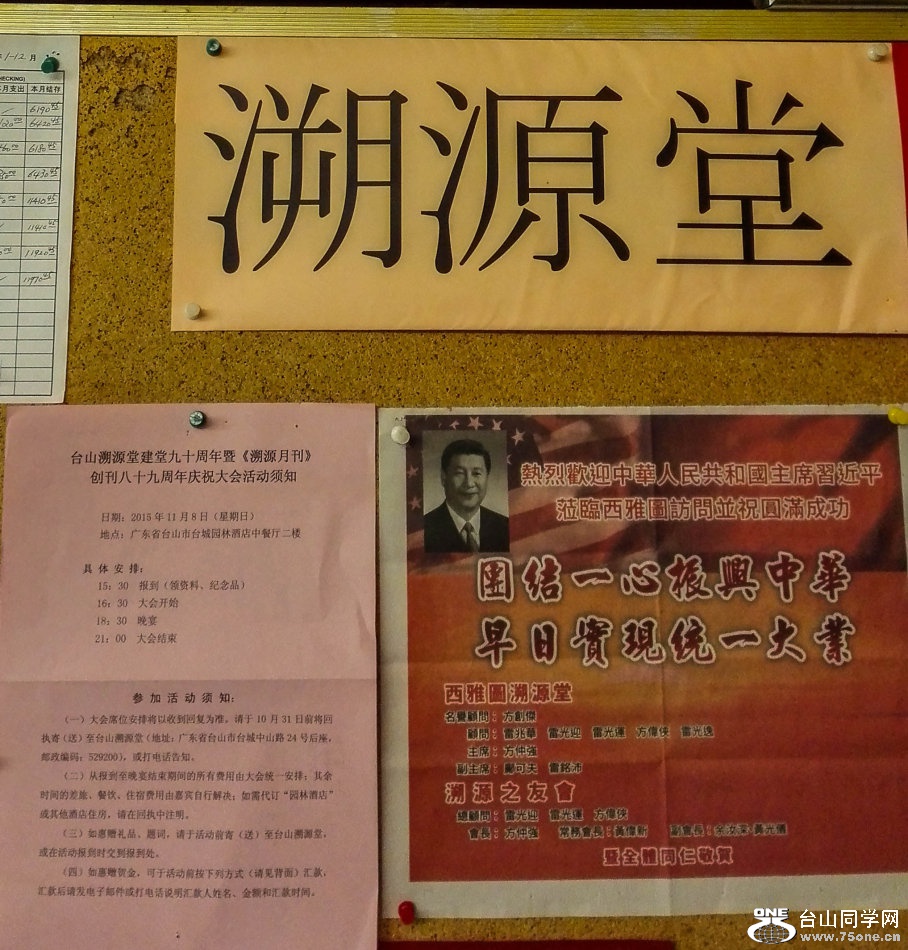 1-12 月
本月结存
6190
6420
6180
6430
11410
11410
11920
11970
溯源堂
台山溯源堂建堂九十周年暨《溯源月刊》
创刊八十九周年庆祝大会活动须知
日期：2015 年 11 月 8 日（星期日）
地点：广东省台山市台城园林酒店中餐厅二楼
具 体 安 排：
15：30 报到（领资料、纪念品）
16：30 大会开始
18：30 晚宴
21：00 大会结束
参 加 活 动 须 知：
（一）大会席位安排将以收到回复为准。请于 10 月 31 日前将回
执寄（送）至台山溯源堂（地址：广东省台山市台城中山路 24 号后座，
邮政编码：529200），或打电话告知。
（二）从报到至晚宴结束期间的所有费用由大会统一安排；其余
时间的差旅、餐饮、住宿费用由嘉宾自行解决；如需代订“园林酒店”
或其他酒店住房，请在回执中注明。
（三）如惠赠礼品、题词，请于活动前寄（送）至台山溯源堂，
或在活动报到时交到报到处。
（四）如惠赠贺金，可于活动前按下列方式（请见背面）汇款，
汇款后请发电子邮件或打电话说明汇款人姓名、金额和汇款时间。
熱烈歡迎中華人民共和國主席習近平
蒞臨西雅圖訪問並祝圓滿成功
團结一心振興中華
早日實現统一大業
西雅圖溯源堂
名譽顧問：方創傑
顧問：雷兆華 雷光迎 雷光運 方偉俠 雷光逸
主席：方仲強
副主席：鄺可夫 雷銘沛
溯源之友會
總顧問：雷光迎 雷光運 方偉俠
會長：方仲強 常務會長：黃偉新 副會長：余汝深 黃光儀
暨全體同仁敬賀
ONE 台山同学网
www.75one.cn